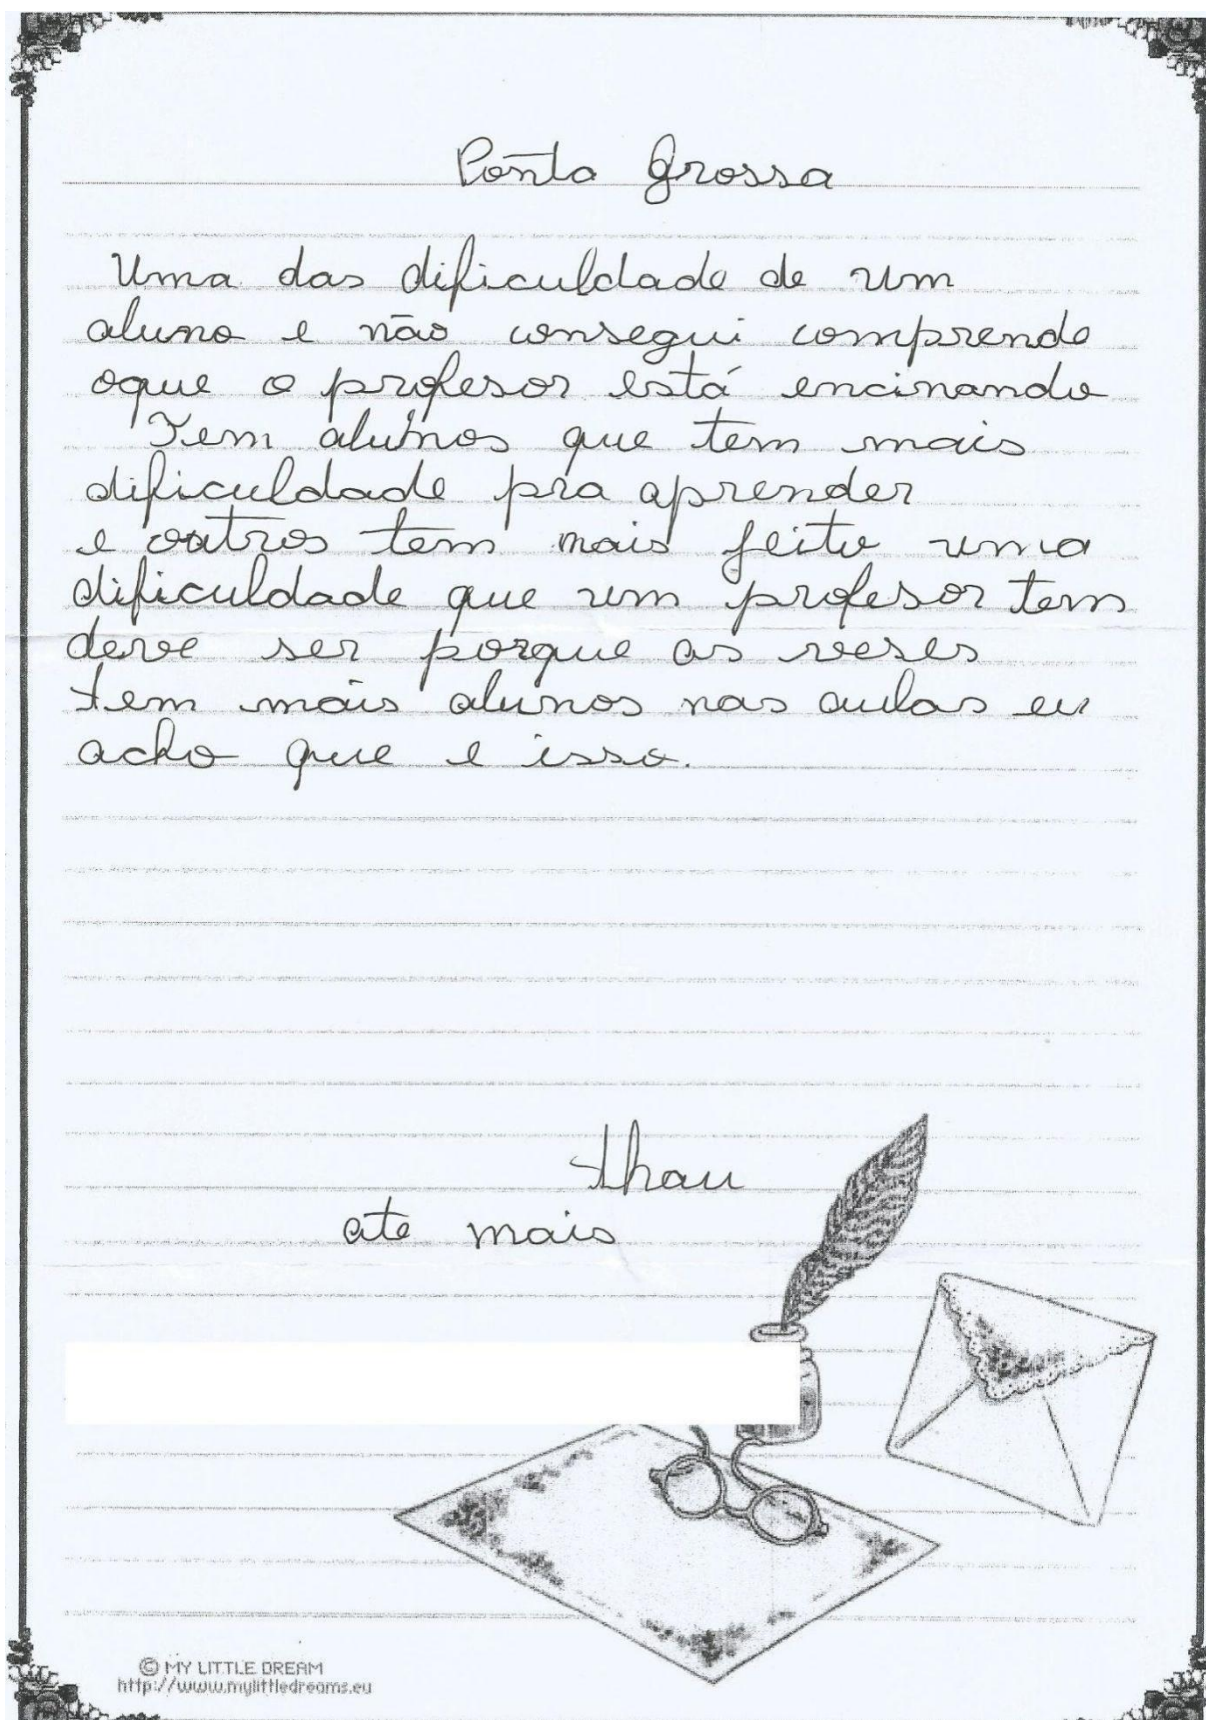 Ponta Grossa
Uma das dificuldade de um
aluno e não consegui comprende
oque o profesor está encinando
Tem alunos que tem mais
dificuldade pra aprender
e outros tem mais jeito uma
dificuldade que um profesor tem
deve ser porque as veses
tem mais alunos nas aulas eu
acho que e isso.
thau
ate mais
© MY LITTLE DREAM
http://www.mylittledreams.eu